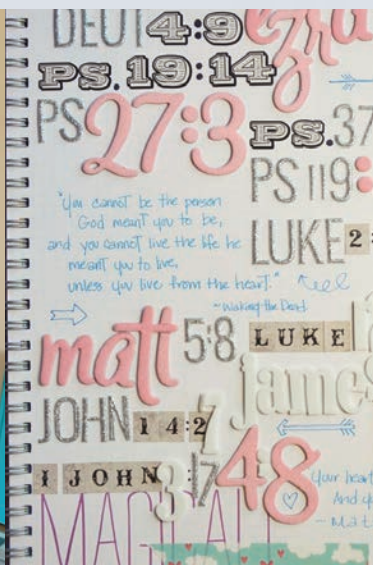 DEUT 4:9
ezra
PS. 19:14
PS 27:3
PS. 37
PS 119:
"You cannot be the person
God meant you to be,
and you cannot live the life he
meant you to live,
unless you live from the heart."
~Waking the Dead
LUKE 2:
matt 5:8
LUKE
james
JOHN 14:27
48
I JOHN 3:17
Your heart
And yo
- Mat
MAGICALL